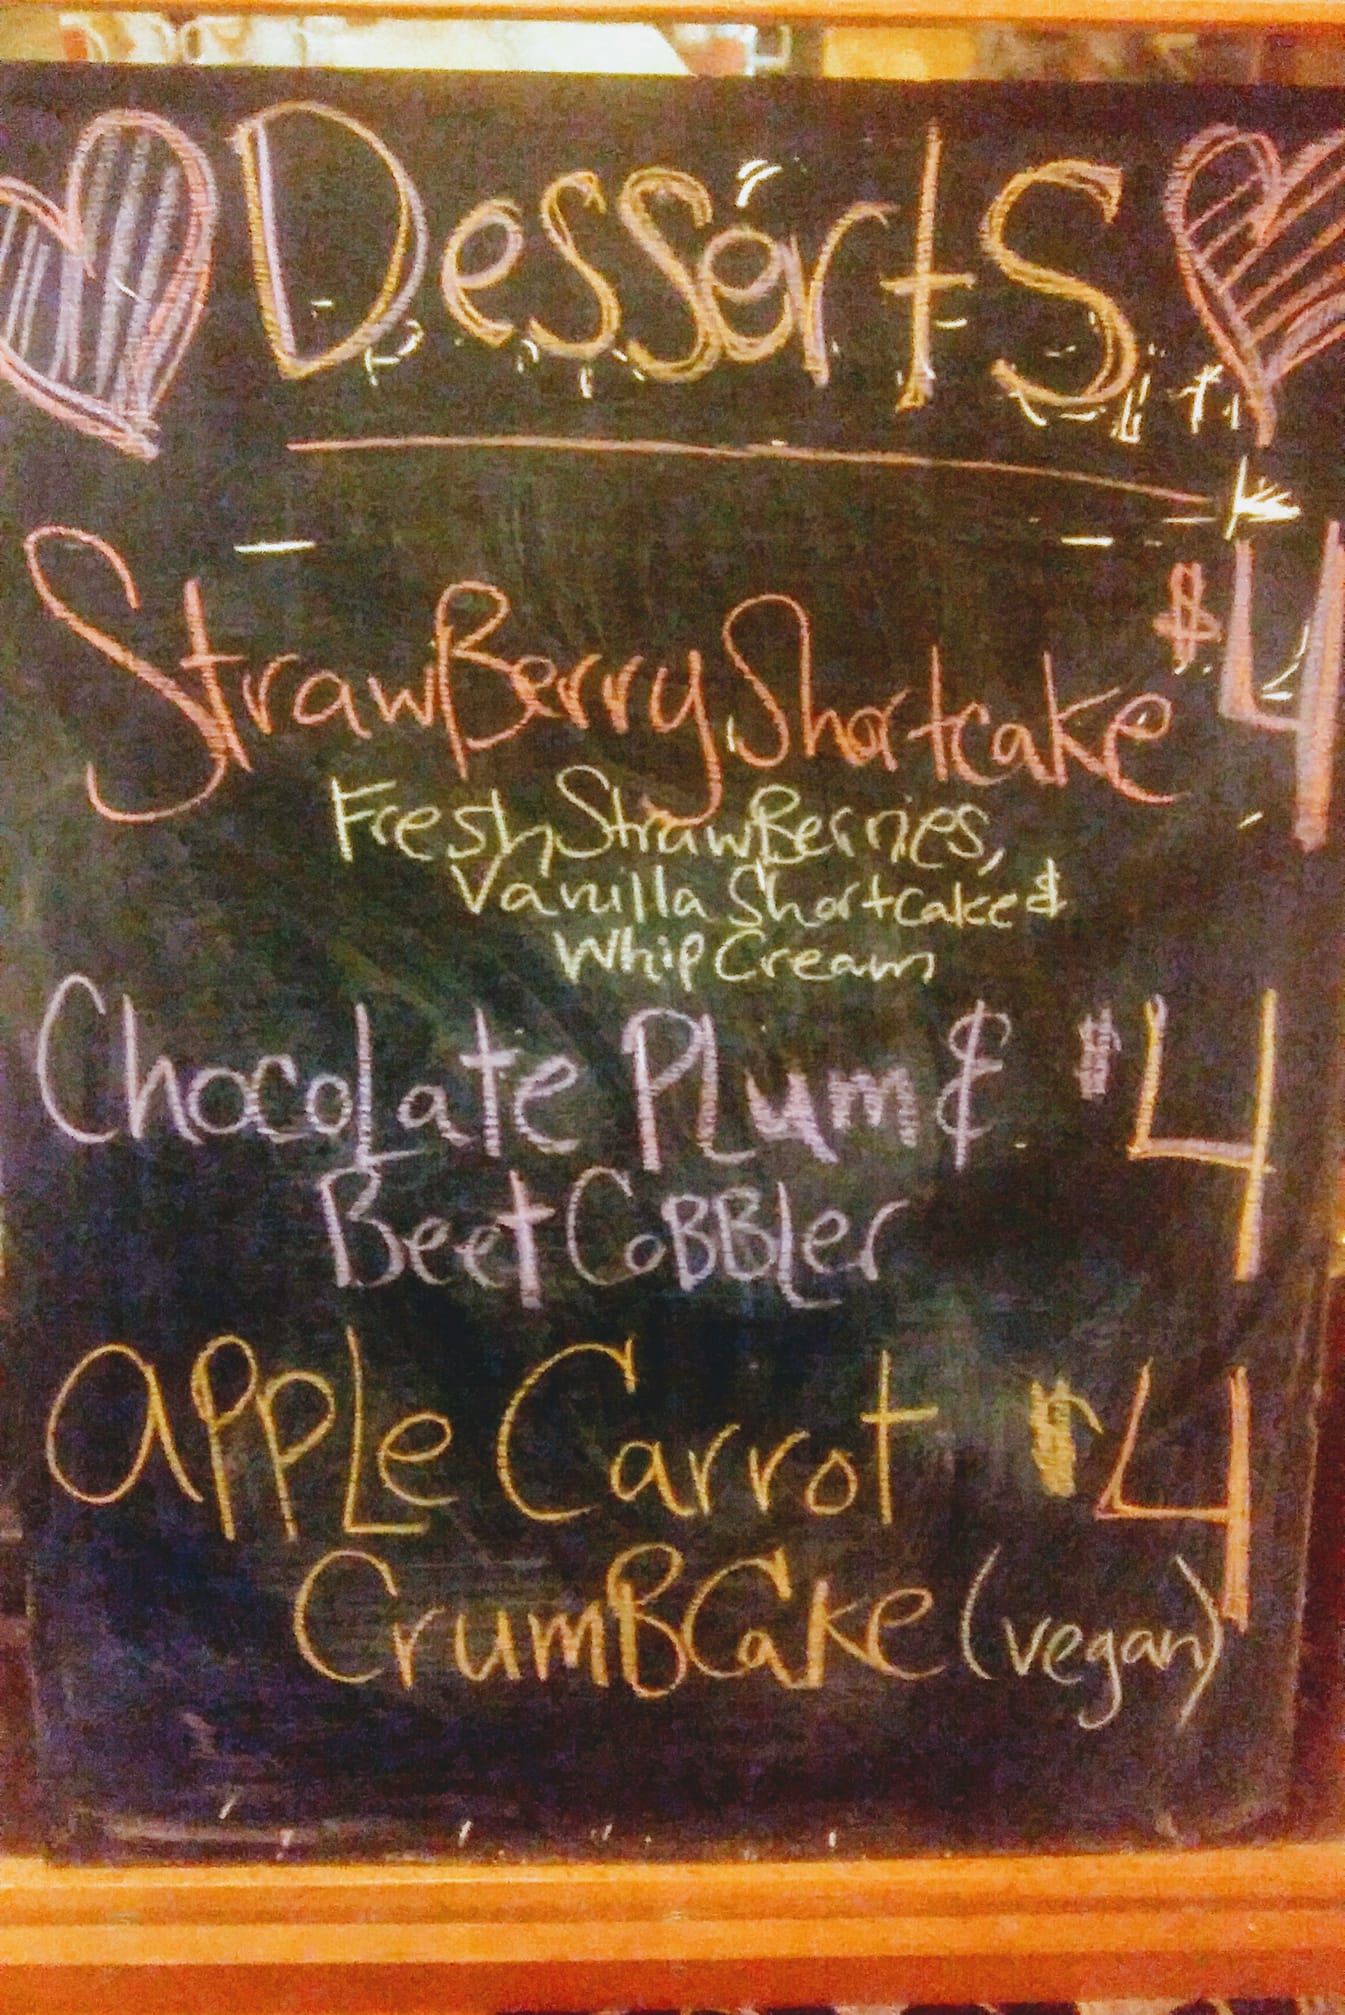 Desserts
StrawBerry Shortcake $4
Fresh StrawBerries,
Vanilla Shortcake &
Whip Cream
ChocoLate PLum & $4
Beet CoBBLer
aPPLe Carrot $4
CrumBCake (vegan)